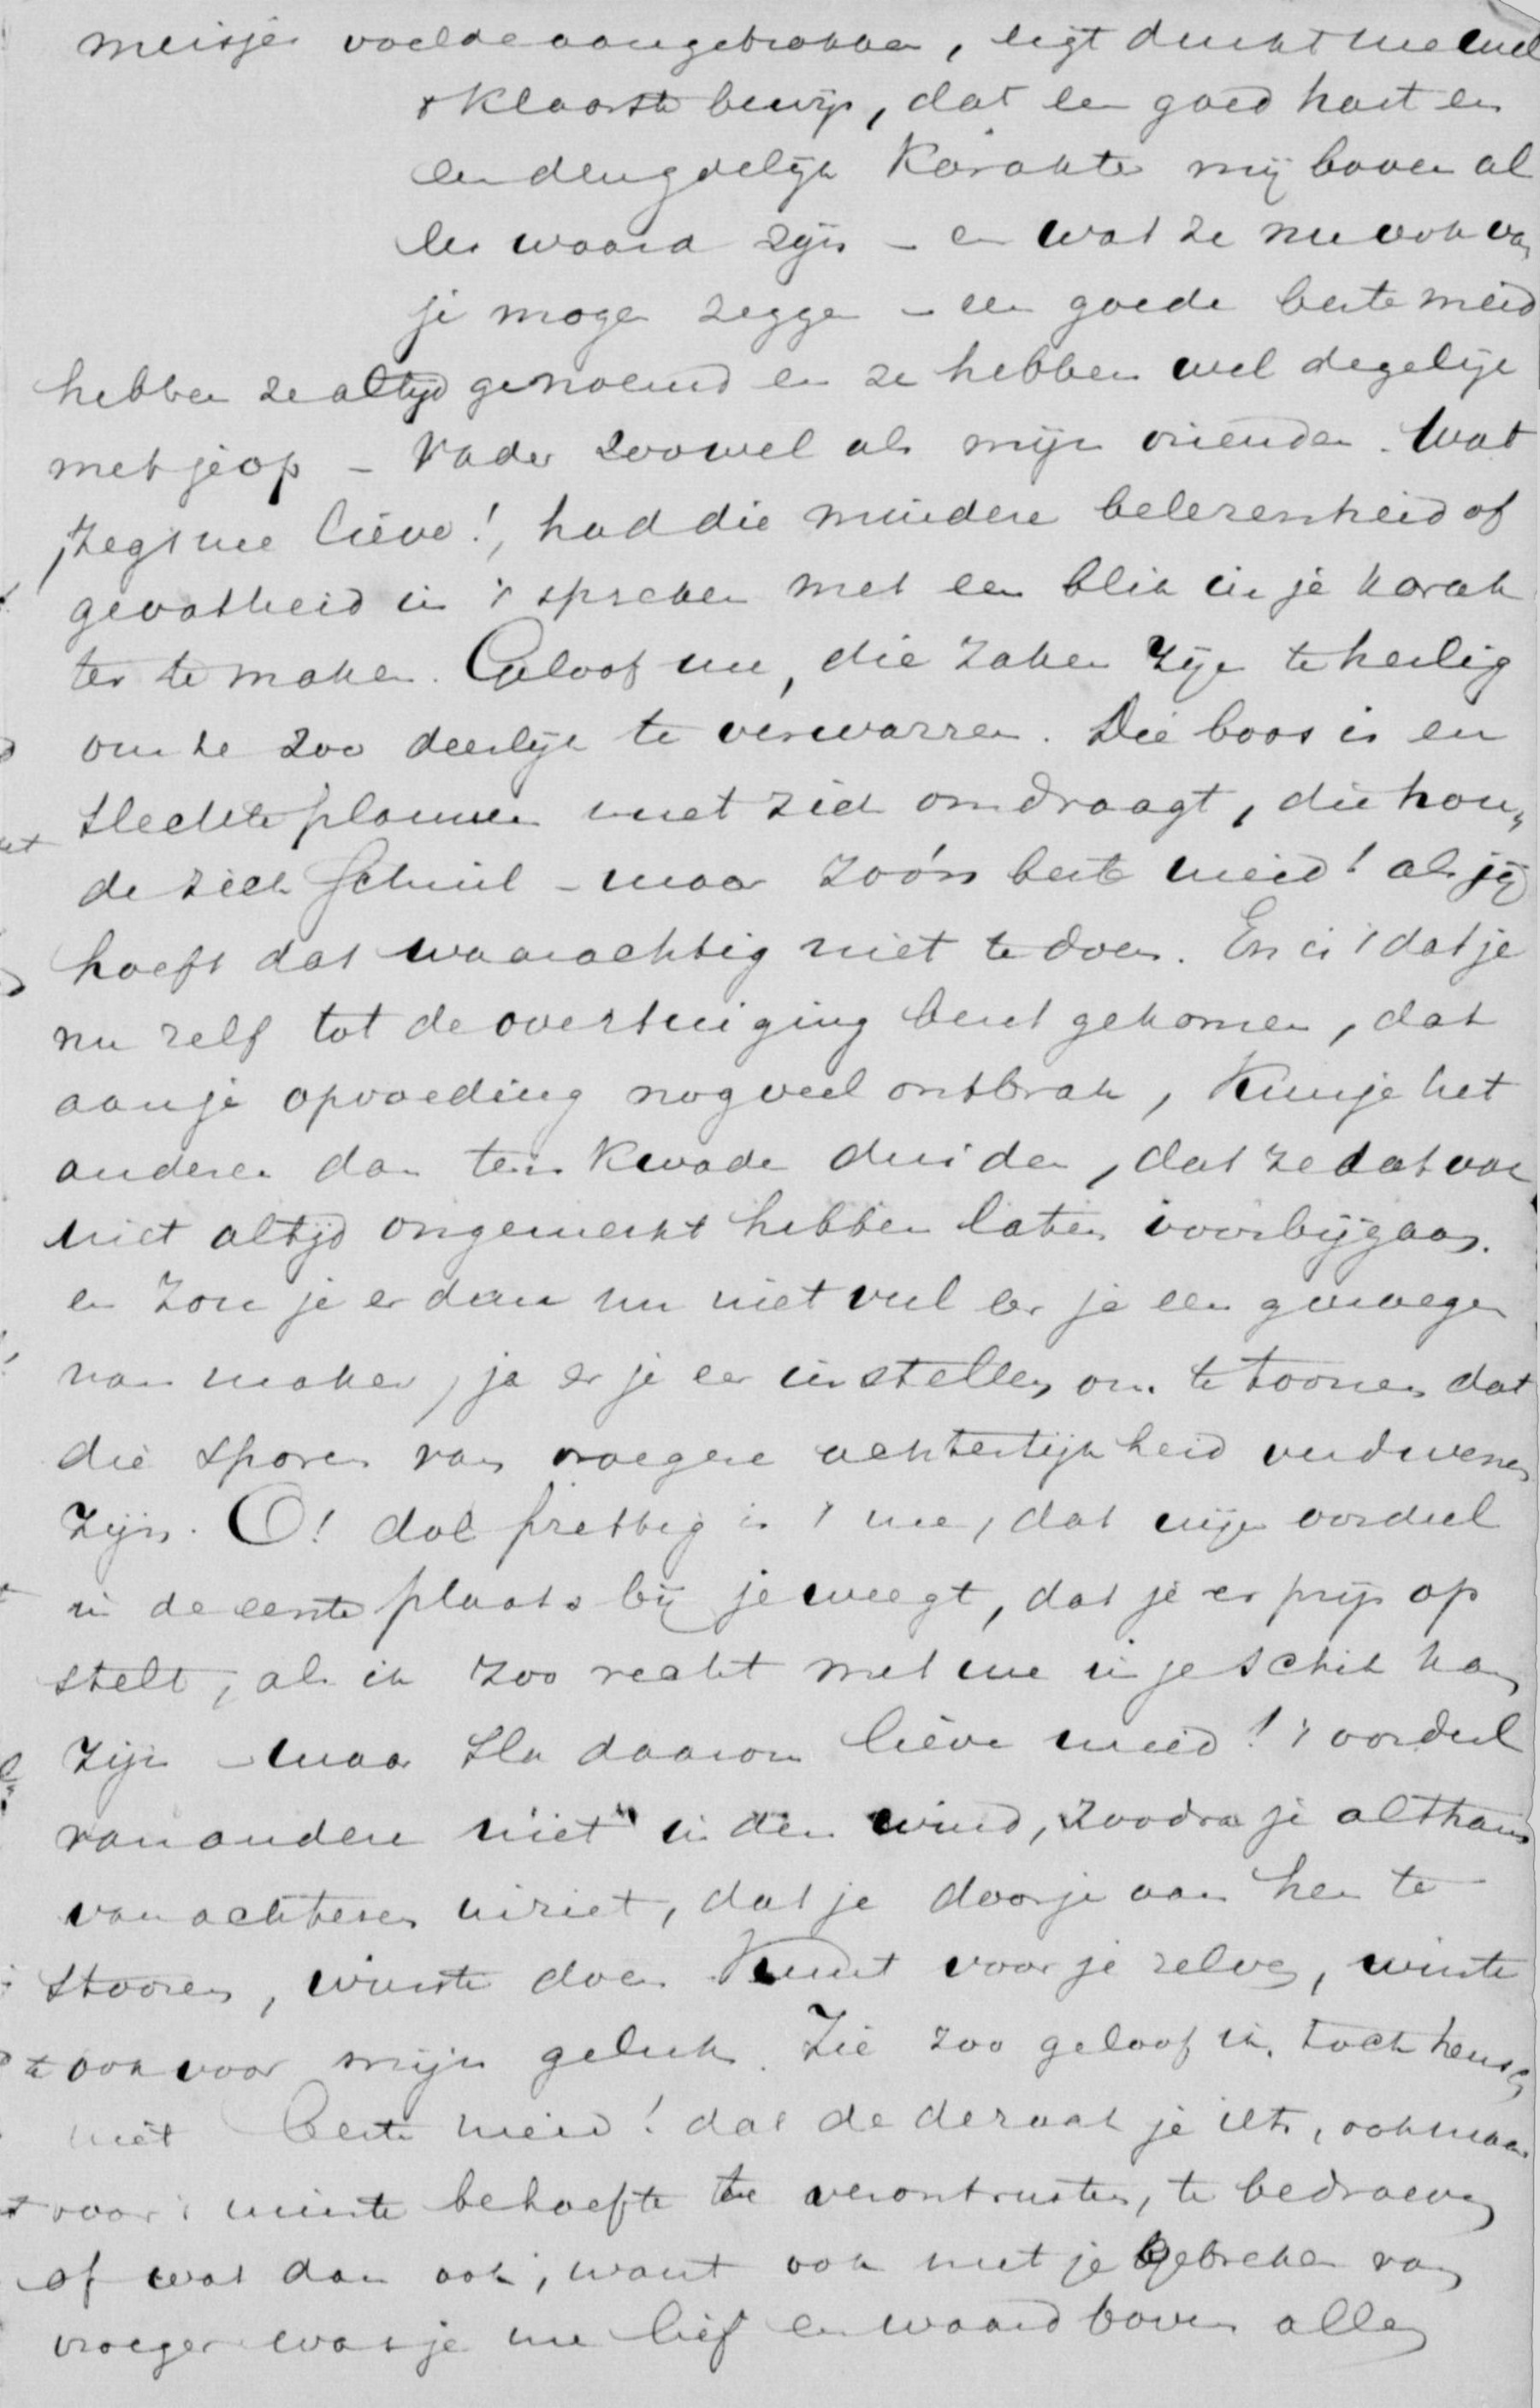 meisje voelde aangetrokken, ligt dunkt me wel
't klaarste bewijs, dat een goed hart en
een deugdelijk karakter mij boven al
les waard zijn – en wat ze nu ook van
je mogen zeggen – een goede beste meid
hebben ze altijd genoemd en ze hebben wel degelijk
met je op – Vader zoowel als mijn vrienden. Wat
zegt me lieve!, had die mindere belezenheid of
gevatheid in 't spreken met een blik in je karak
ter te maken. Geloof me, die zaken zijn te heilig
om ze zoo deerlijk te verwarren. Die boos is en
slechte plannen met zich omdraagt, die hou„
de zich schuil – maar zóó'n beste meid! als jij
hoeft dat waarachtig niet te doen. En is 't dat je
nu zelf tot de overtuiging bent gekomen, dat
aan je opvoeding nog veel ontbrak, kun je het
anderen dan ten kwade duiden, dat ze dat ook
niet altijd ongemerkt hebben laten voorbijgaan.
en zou je er dan nu niet veel eer je een genoegen
van maken, ja er je eer in stellen om te toonen dat
die sporen van vroegere achterlijkheid verdwenen
zijn. O! dol prettig is 't me, dat mijn oordeel
in de eerste plaats bij je weegt, dat je er prijs op
stelt, als ik zoo recht met me in je schik kan
zijn – maar sla daarom lieve meid! 't oordeel
van andere niet in den wind, zoodra je althans
van achteren inziet, dat je door je aan hen te
stooren, winste doen kunt voor je zelve, winste
ook voor mijn geluk. Zie zoo geloof ik toch heusch
niet beste meid! dat de je iets, ook maar
voor 't minste behoefte te verontrusten, te bedroeven
of wat dan ook, want ook met je gebreken van
vroeger was je me lief en waard boven allen